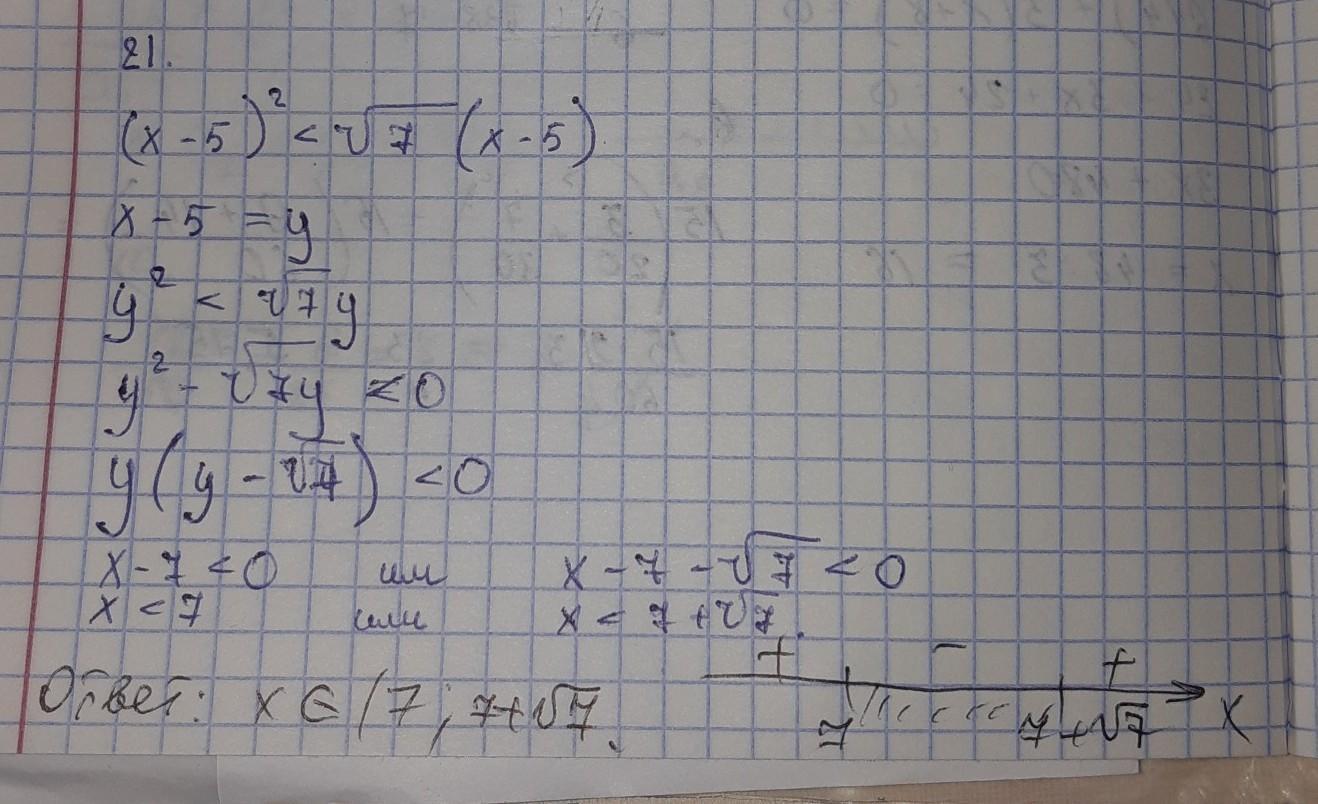 21.
(x-5)² < √7 (x-5)
x-5 = y
y² < √7 y
y² - √7y < 0
y(y-√7) < 0
x-7 < 0 или x-7-√7 < 0
x < 7 или x < 7+√7.
+ - +
Ответ: x ∈ (7; 7+√7.
7 7+√7 x